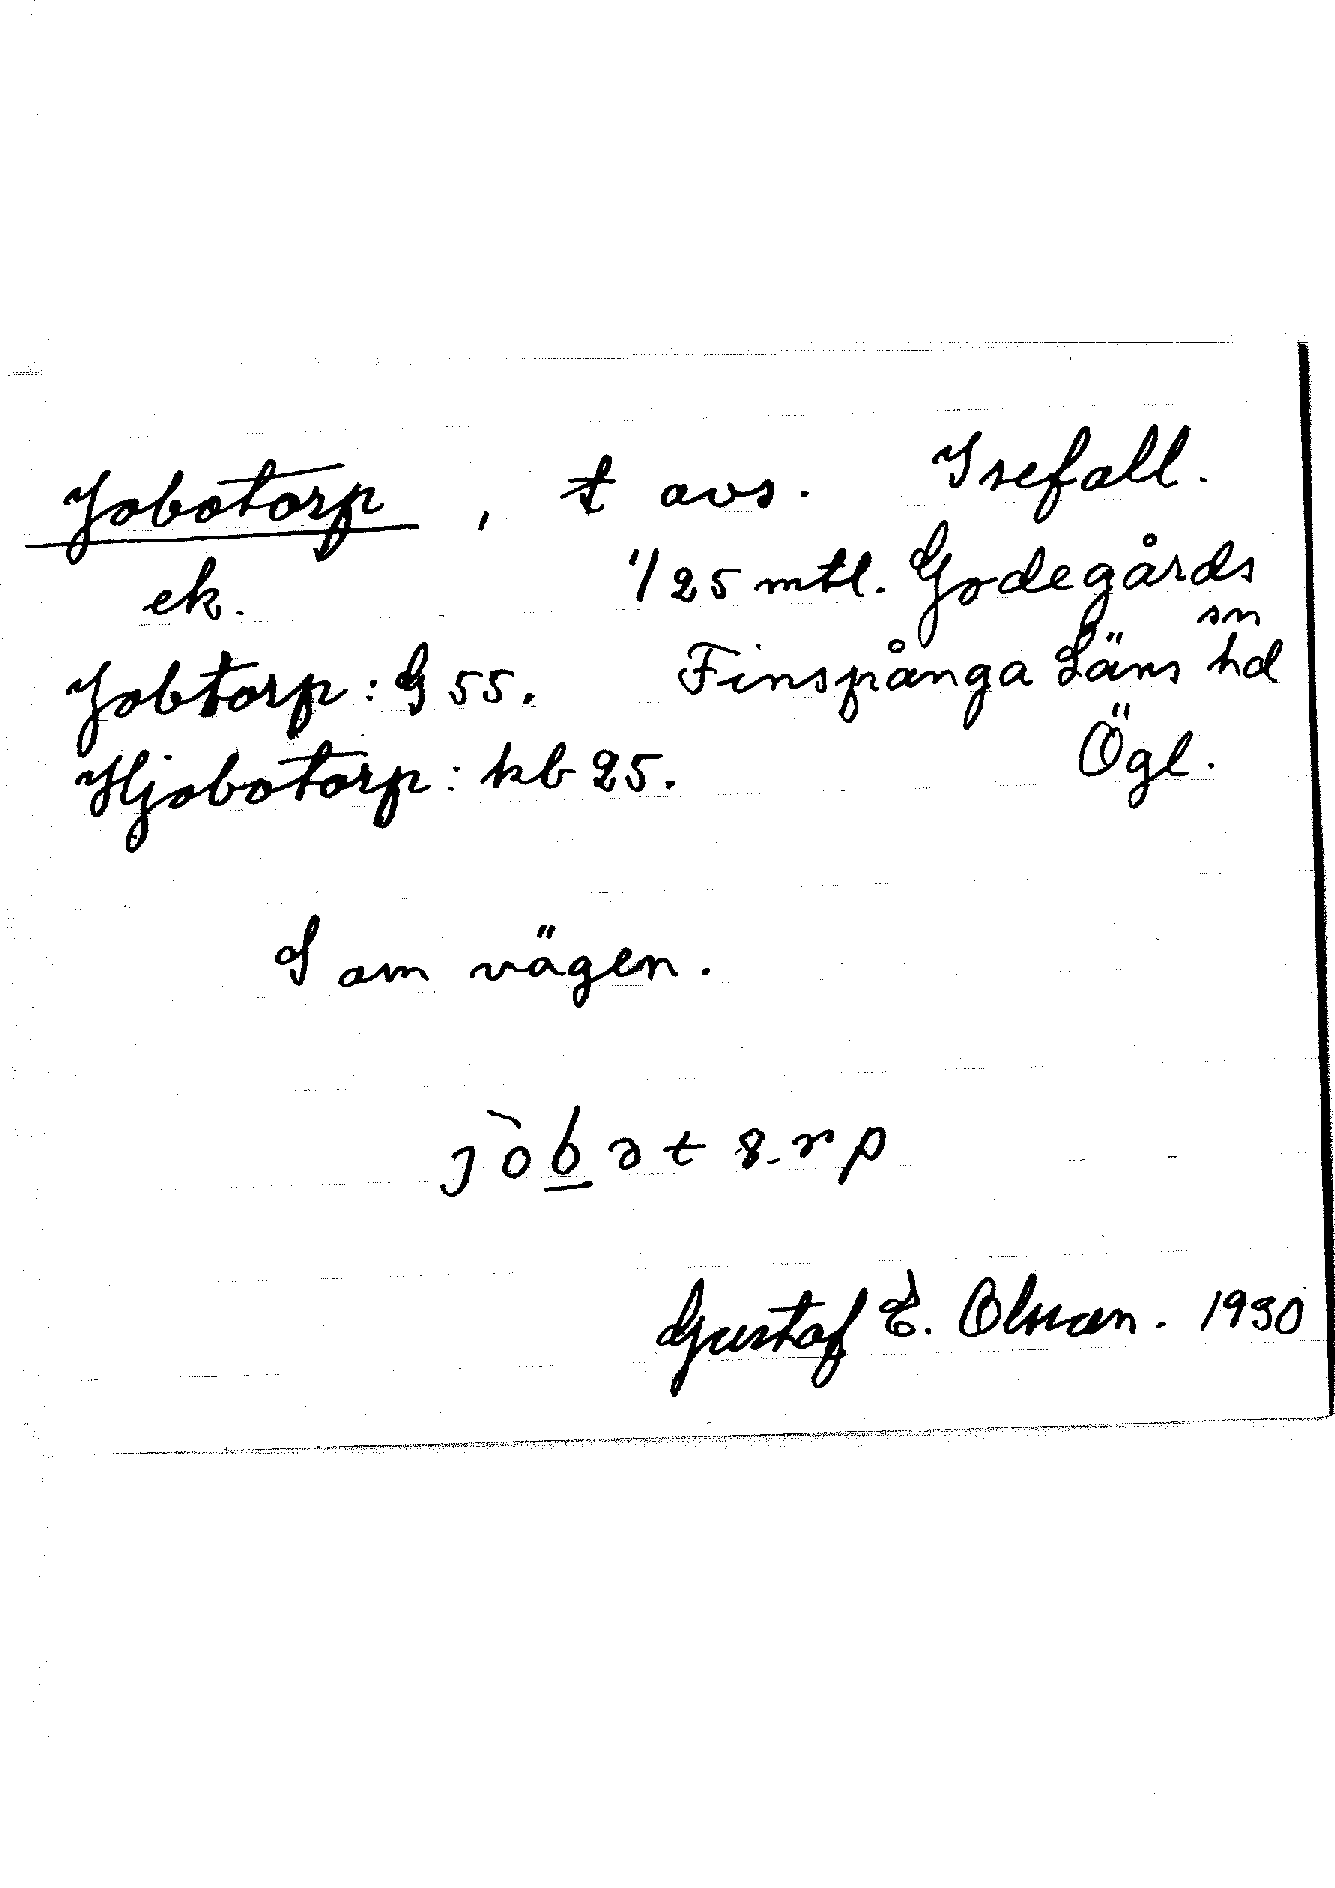 Jobotorp, t avs. Isefall.
ek. 1/25 mtl. Godegårds sn
Jobtorp: G 55. Finspånga Läns hd
Hjobotorp: kb 25. Ögl.
S om vägen.
Gustaf E. Olsson. 1930